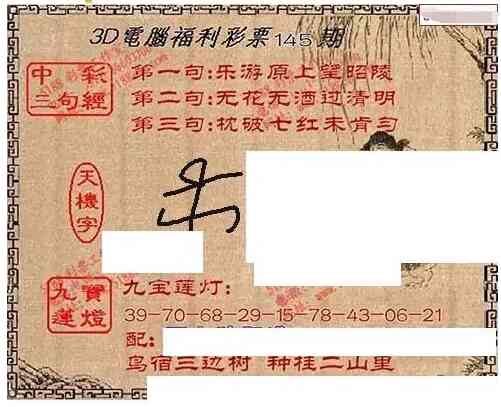 3D電腦福利彩票145期
中彩
三句經
第一句:乐游原上望昭陵
第二句:无花无酒过清明
第三句:枕破七红未肯匀
天機字
九寶
蓮燈
九宝莲灯:
39-70-68-29-15-78-43-06-21
配:
鸟宿三边树 种桂二山里